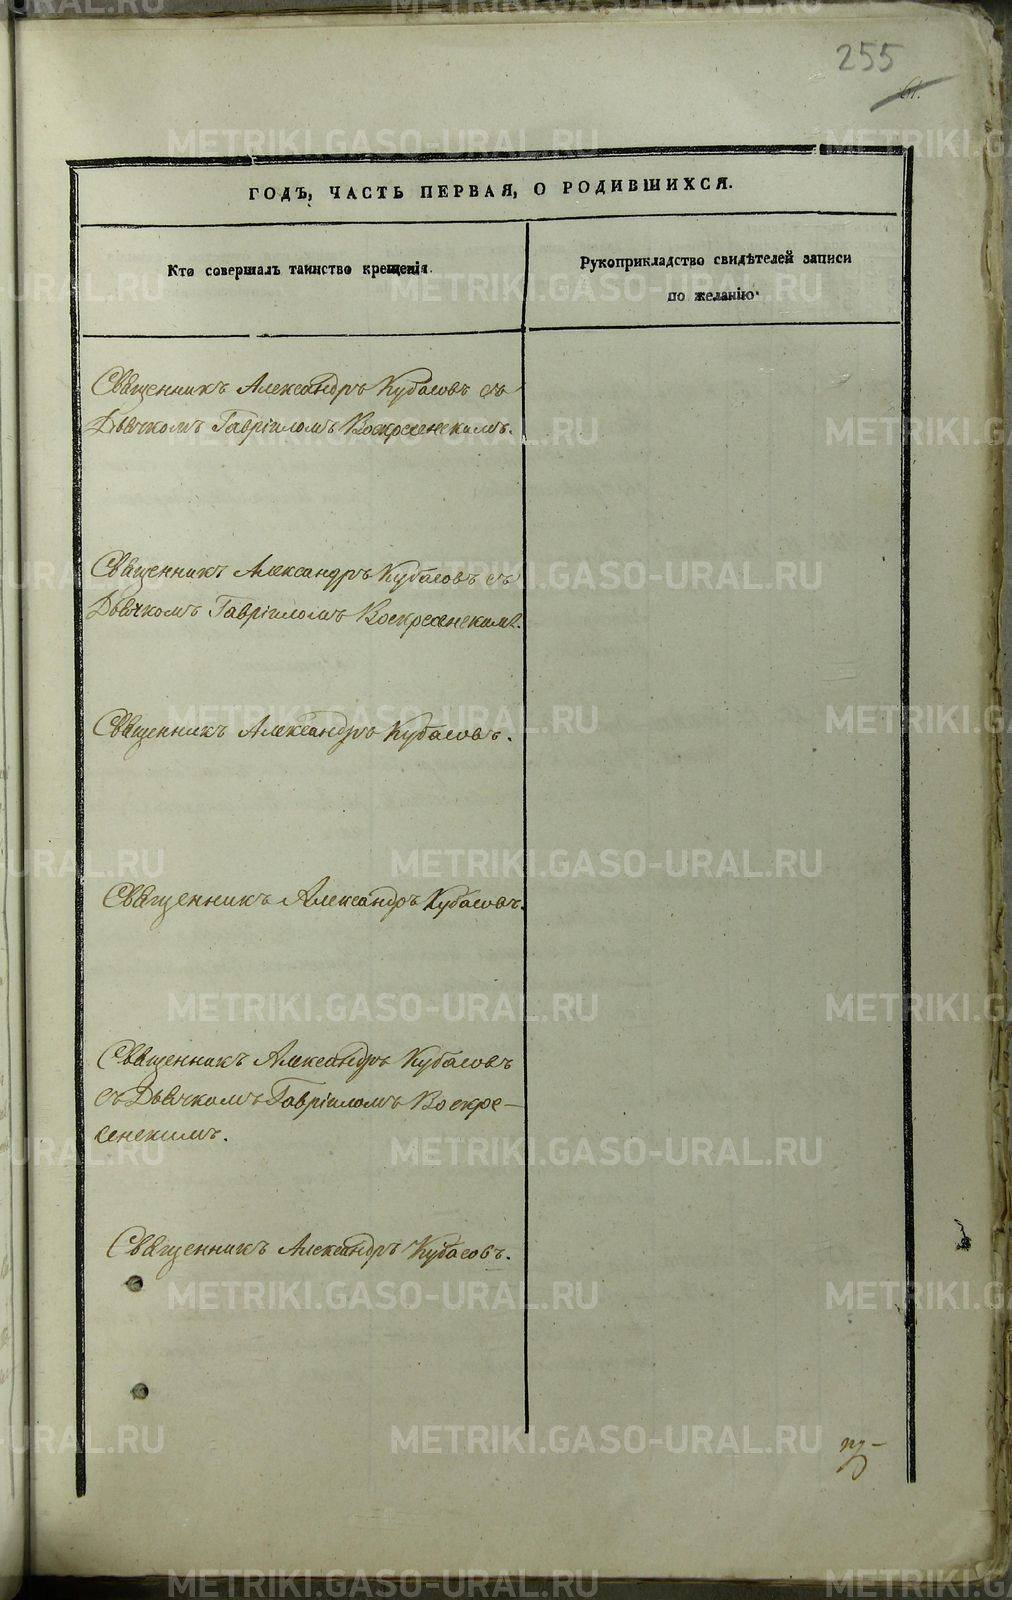 255
61.
ГОДЪ, ЧАСТЬ ПЕРВАЯ, О РОДИВШИХСЯ.
Кто совершалъ таинство крещенія.
Рукоприкладство свидѣтелей записи
по желанію.
Священникъ Александръ Кубасовъ съ
Дьячкомъ Гавріиломъ Воскресенскимъ.
Священникъ Александръ Кубасовъ съ
Дьячкомъ Гавріиломъ Воскресенскимъ.
Священникъ Александръ Кубасовъ.
Священникъ Александръ Кубасовъ.
Священникъ Александръ Кубасовъ
съ Дьячкомъ Гавріиломъ Воскре-
сенскимъ.
Священникъ Александръ Кубасовъ.
METRIKI.GASO-URAL.RU